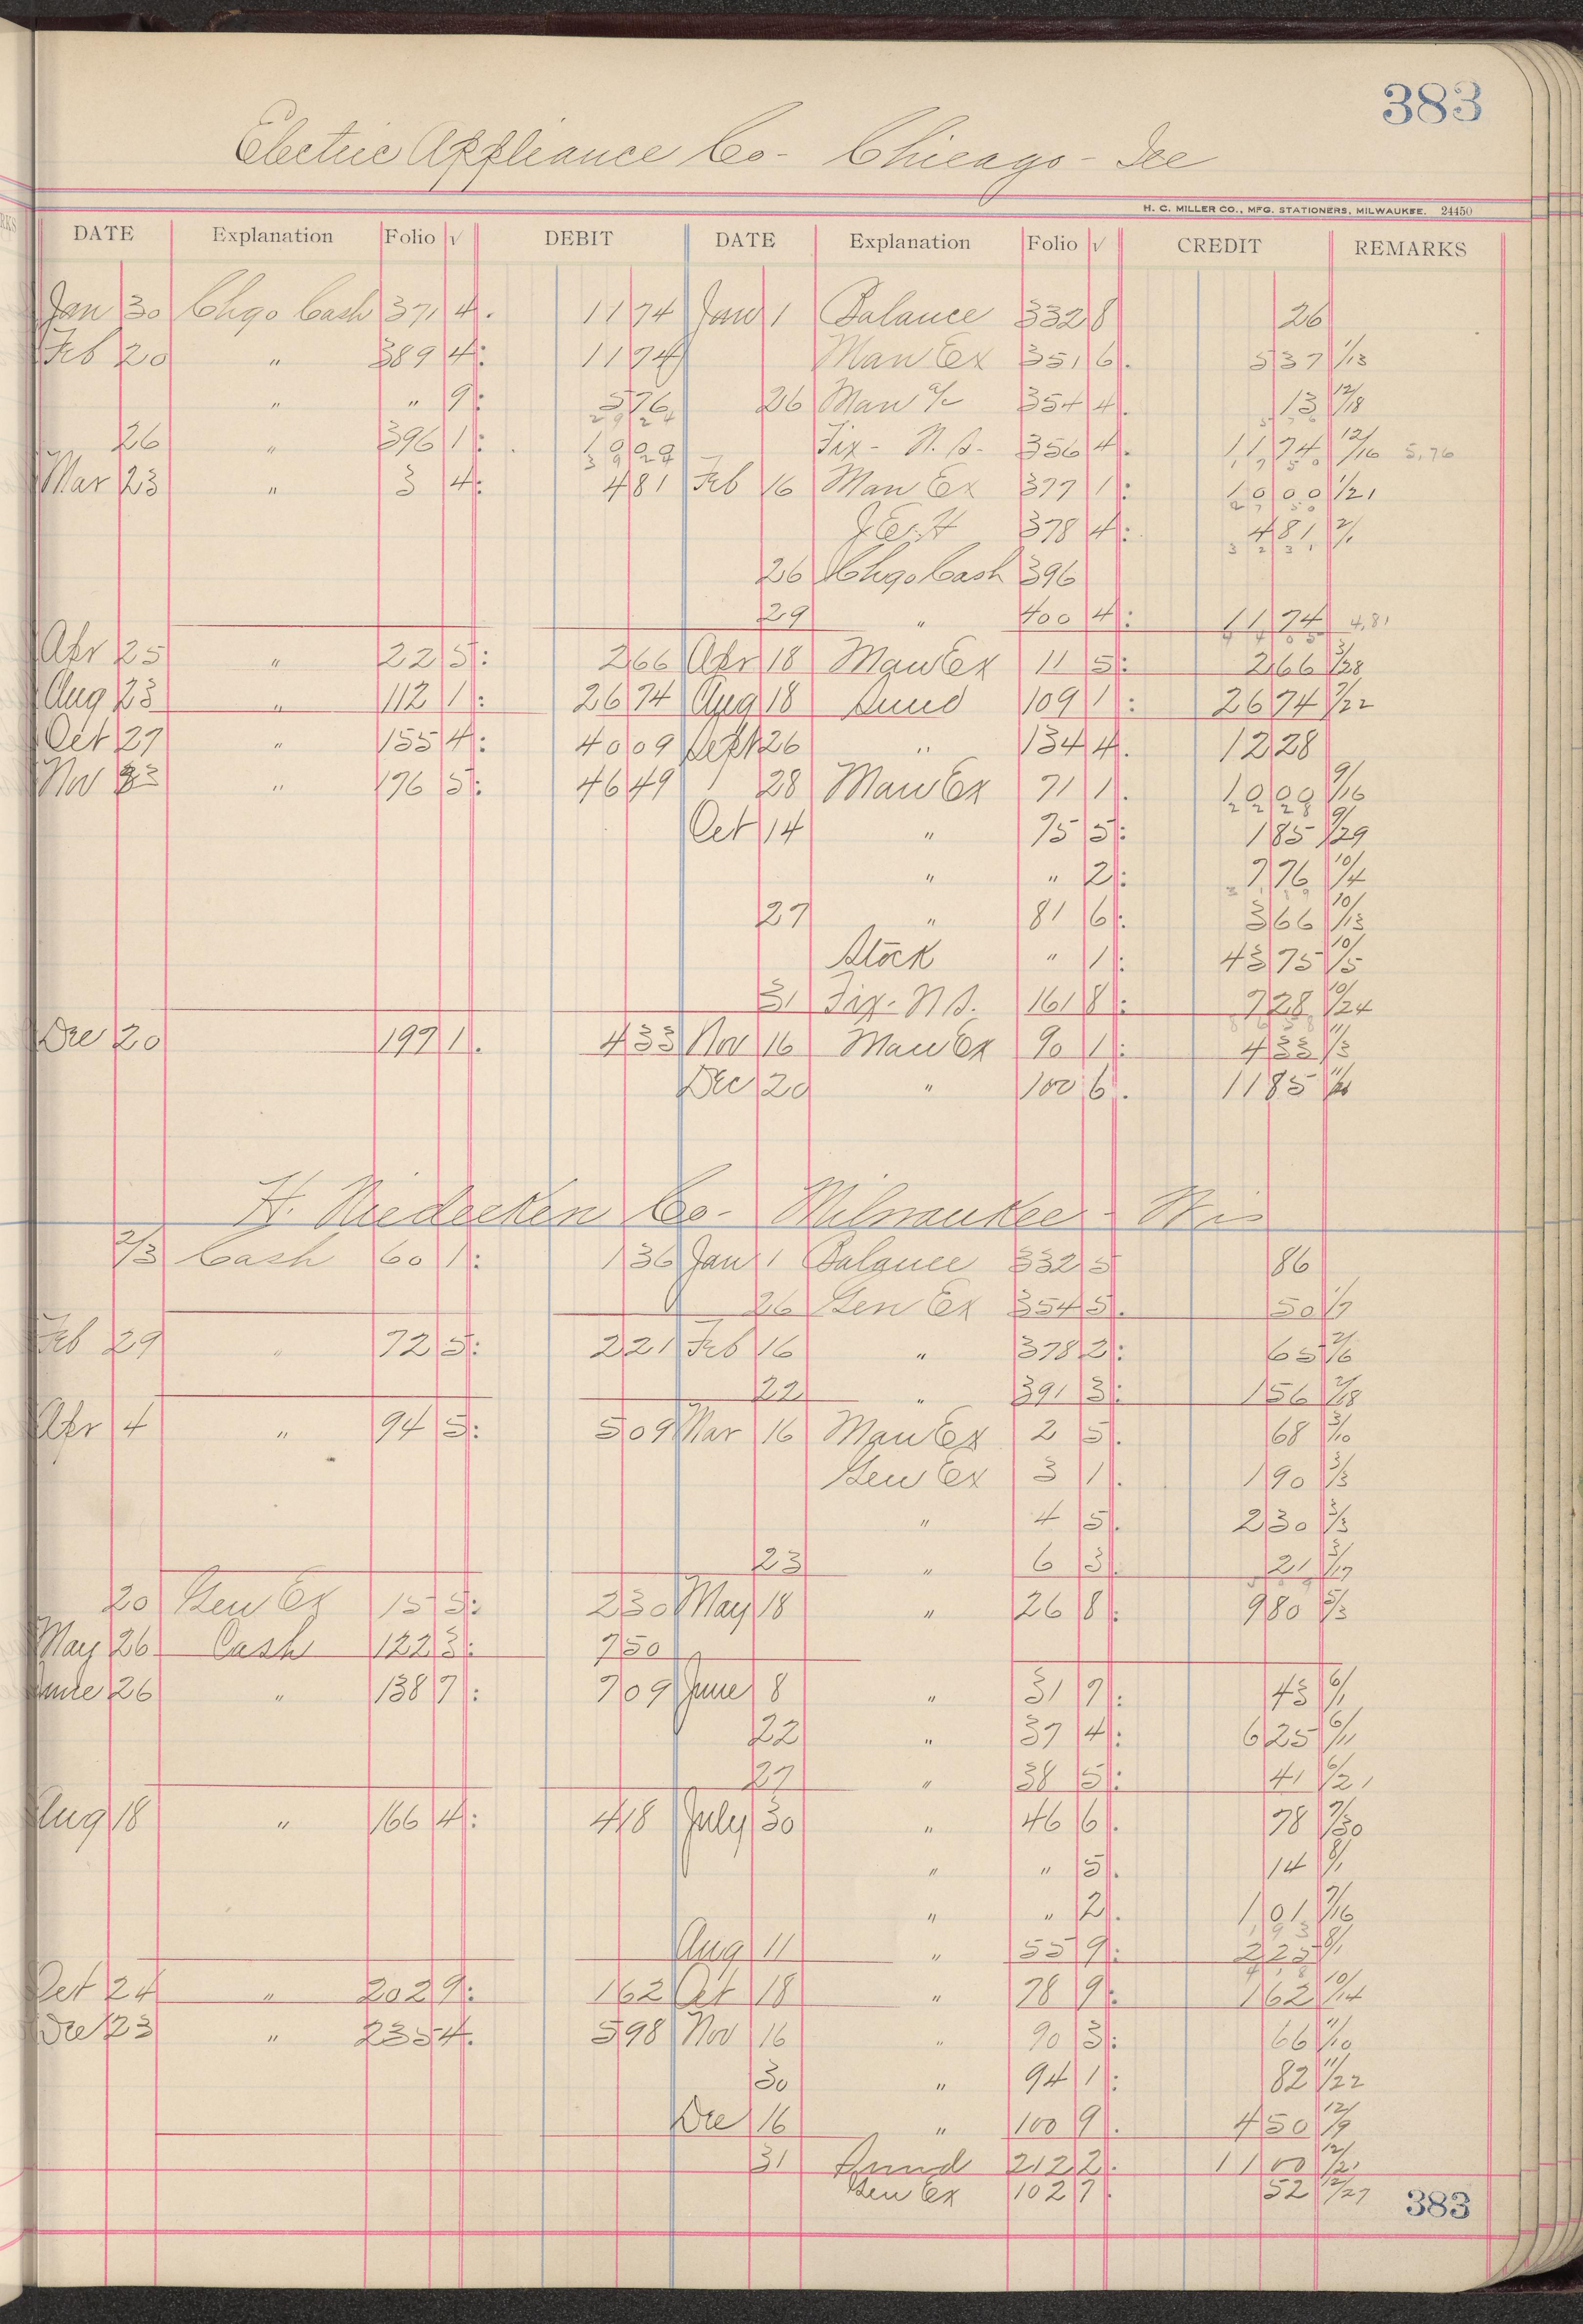 383
Electric Appliance Co- Chicago - Ill
H. C. MILLER CO., MFG. STATIONERS, MILWAUKEE. 24450
DATE Explanation Folio √ DEBIT DATE Explanation Folio √ CREDIT REMARKS
Jan 30 Chgo Cash 371 4. 11 74 Jan 1 Balance 332 8 26
Feb 20 " 389 4: 11 74 Man Ex 351 6. 5 37 1/13
" " 9: 5 76 26 Man a/c 354 4. 13 12/18
26 " 396 1: Fix - N.S. 356 4. 11 74 12/16 5,76
Mar 23 " 3 4: 4 81 Feb 16 Man Ex 377 1: 10 00 1/21
378 4: 4 81 2/1
26 Chgo Cash 396
29 " 400 4: 11 74 4,81
Apr 25 " 22 5: 2 66 Apr 18 Man Ex 11 5: 2 66 3/28
Aug 23 " 112 1: 26 74 Aug 18 Sund 109 1: 26 74 7/22
Oct 27 " 155 4: 40 09 Sept 26 " 134 4. 12 28
Nov 23 " 176 5: 46 49 28 Man Ex 71 1. 9/16
Oct 14 " 75 5: 1 85 9/29
" " 2: 7 76 10/4
27 " 81 6: 3 66 10/13
Stock " 1: 43 75 10/5
31 Fix- N S. 161 8: 7 28 10/24
Dec 20 197 1. 4 33 Nov 16 Man Ex 90 1: 4 33 11/3
Dec 20 " 100 6. 11 85
H. Niedecken Co- Milwaukee - Wis
2/3 Cash 60 1: 1 36 Jan 1 Balance 332 5 86
26 Gen Ex 354 5. 50 1/7
Feb 29 " 72 5: 2 21 Feb 16 " 378 2: 65 2/6
22 " 391 3: 1 56 2/18
Apr 4 " 94 5: 5 09 Mar 16 Man Ex 2 5. 68 3/10
Gen Ex 3 1. 1 90 3/3
" 4 5. 2 30 3/3
23 " 6 3. 21 3/17
20 Gen Ex 15 5: 2 30 May 18 " 26 8: 9 80 5/3
May 26 Cash 122 3: 7 50
June 26 " 138 7: 7 09 June 8 " 31 7: 43 6/1
22 " 37 4: 6 25 6/11
27 " 38 5: 41 6/21
Aug 18 " 166 4: 4 18 July 30 " 46 6. 78 7/30
" " 5. 14 8/1
" " 2. 1 01 7/16
Aug 11 " 55 9: 2 25 8/1
Oct 24 " 202 9: 1 62 Oct 18 " 78 9: 1 62 10/14
Dec 23 " 235 4. 5 98 Nov 16 " 90 3: 66 11/10
30 " 94 1: 82 11/22
Dec 16 " 100 9. 4 50 12/9
31 Sund 212 2. 11 00 12/21
Gen Ex 102 7. 52 12/27
383